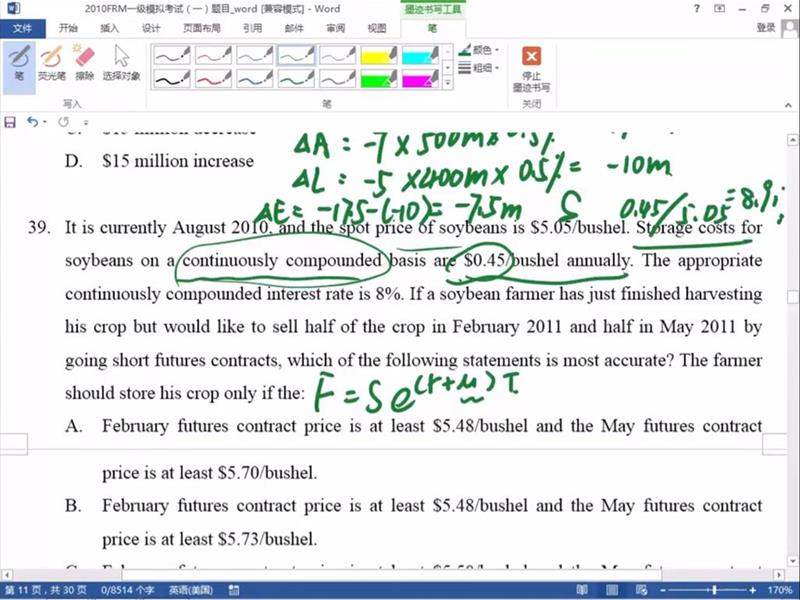 2010FRM一级模拟考试（一）题目_word [兼容模式] - Word
墨迹书写工具
文件 开始 插入 设计 页面布局 引用 邮件 审阅 视图 笔 登录
笔 荧光笔 擦除 选择对象 颜色 粗细 停止墨迹书写
写入 笔 关闭
ΔA = -7 × 500m ×
D. $15 million increase
ΔL = -5 × 400m × 0.5% = -10m
ΔE = -17.5-(-10) = -7.5m
0.45/5.05 = 8.9%
39. It is currently August 2010, and the spot price of soybeans is $5.05/bushel. Storage costs for
soybeans on a continuously compounded basis are $0.45/bushel annually. The appropriate
continuously compounded interest rate is 8%. If a soybean farmer has just finished harvesting
his crop but would like to sell half of the crop in February 2011 and half in May 2011 by
going short futures contracts, which of the following statements is most accurate? The farmer
should store his crop only if the:
F = S e^(r+u)T
A. February futures contract price is at least $5.48/bushel and the May futures contract
price is at least $5.70/bushel.
B. February futures contract price is at least $5.48/bushel and the May futures contract
price is at least $5.73/bushel.
第 11 页，共 30 页 0/8514 个字 英语(美国) 170%